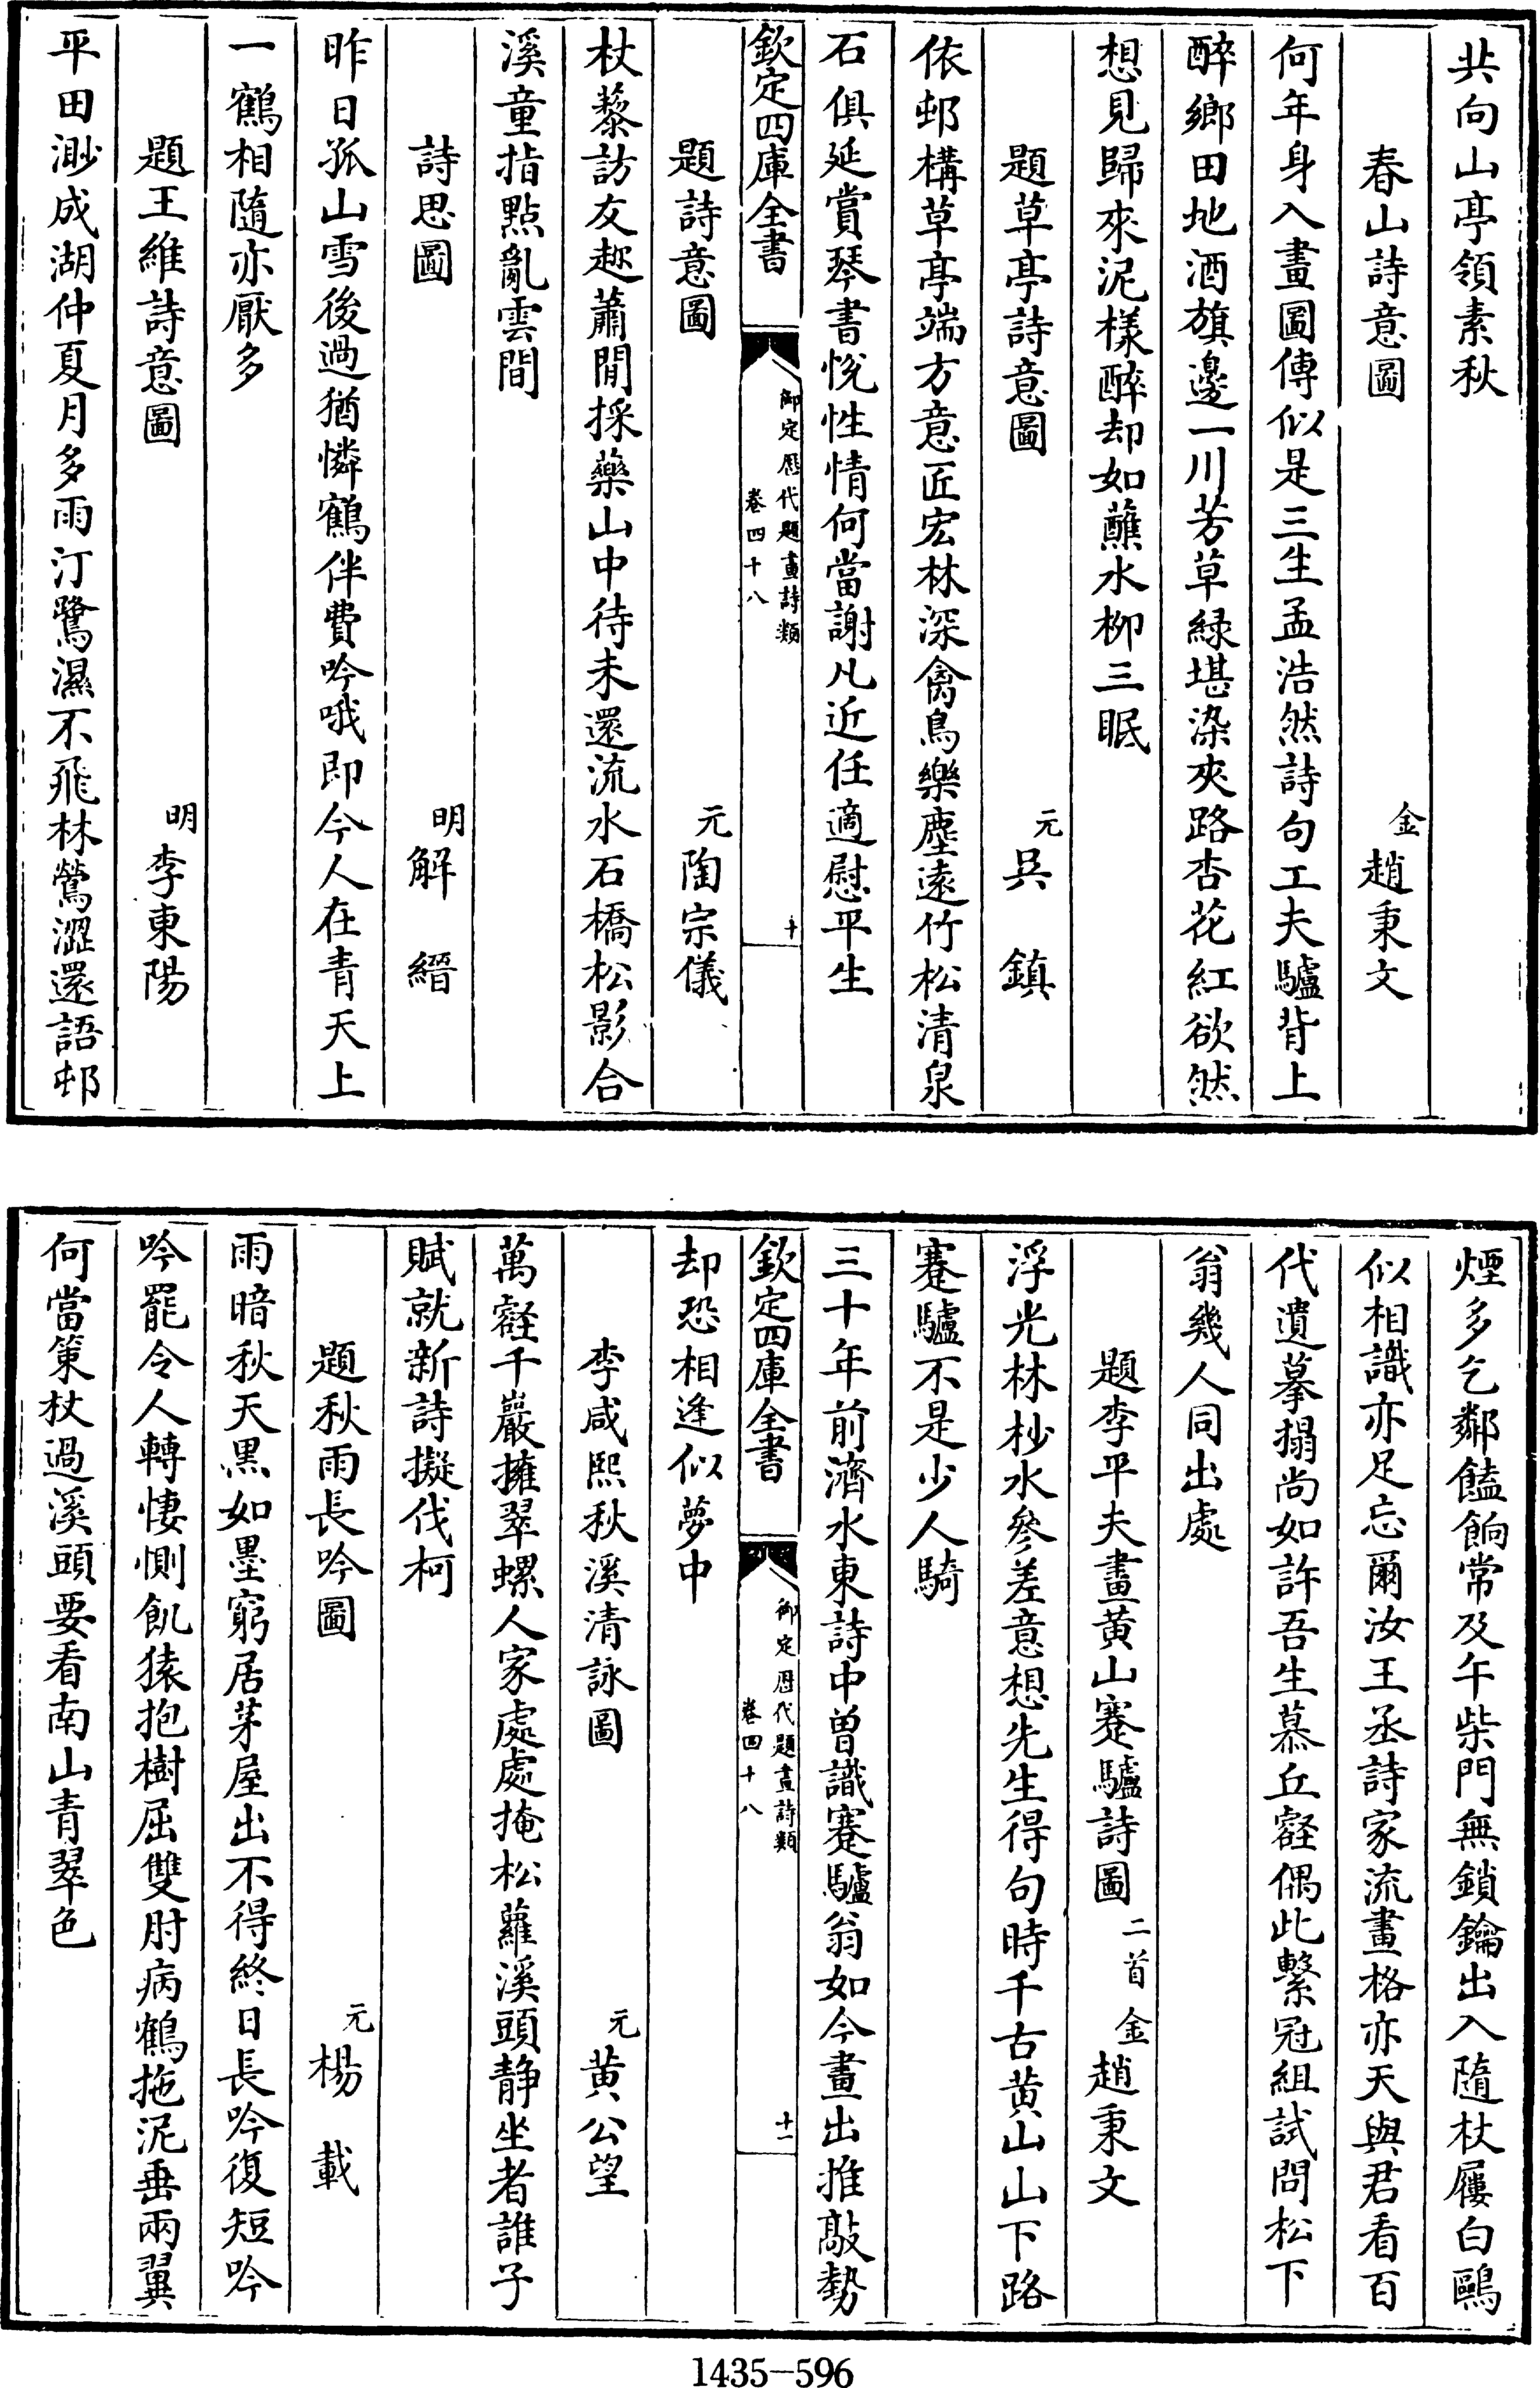 共向山亭領素秋
春山詩意圖
金趙秉文
何年身入畫圖傳似是三生孟浩然詩句工夫驢背上
醉鄉田地酒旗邊一川芳草緑堪染夾路杏花紅欲然
想見歸來泥様醉却如蘸水柳三眠
題草亭詩意圖
元吳鎮
依邨構草亭端方意匠宏林深禽鳥樂塵遠竹松清泉
石俱延賞琴書悅性情何當謝凡近任適慰平生
欽定四庫全書
御定歷代題畫詩類
卷四十八
十
題詩意圖
元陶宗儀
杖藜訪友趂蕭閒採藥山中待未還流水石橋松影合
溪童指點亂雲間
詩思圖
明解縉
昨日孤山雪後過猶憐鶴伴費吟哦即今人在青天上
一鶴相隨亦厭多
題王維詩意圖
明李東陽
平田渺成湖仲夏月多雨汀鷺濕不飛林鶯澀還語邨
煙多乞鄰饁餉常及午柴門無鎖鑰出入隨杖屨白鷗
似相識亦足忘爾汝王丞詩家流畫格亦天與君看百
代遺摹搨尚如許吾生慕丘壑偶此繫冠組試問松下
翁幾人同出處
題李平夫畫黄山蹇驢詩圖二首
金趙秉文
浮光林杪水參差意想先生得句時千古黄山山下路
蹇驢不是少人騎
三十年前濟水東詩中曽識蹇驢翁如今畫出推敲勢
欽定四庫全書
御定歷代題畫詩類
卷四十八
十一
却恐相逢似夢中
李咸熙秋溪清詠圖
元黄公望
萬壑千巖擁翠螺人家處處掩松蘿溪頭静坐者誰子
賦就新詩擬伐柯
題秋雨長吟圖
元楊載
雨暗秋天黒如墨窮居茅屋出不得終日長吟復短吟
吟罷令人轉悽惻飢猿抱樹屈雙肘病鶴拖泥垂兩翼
何當策杖過溪頭要看南山青翠色
1435-596